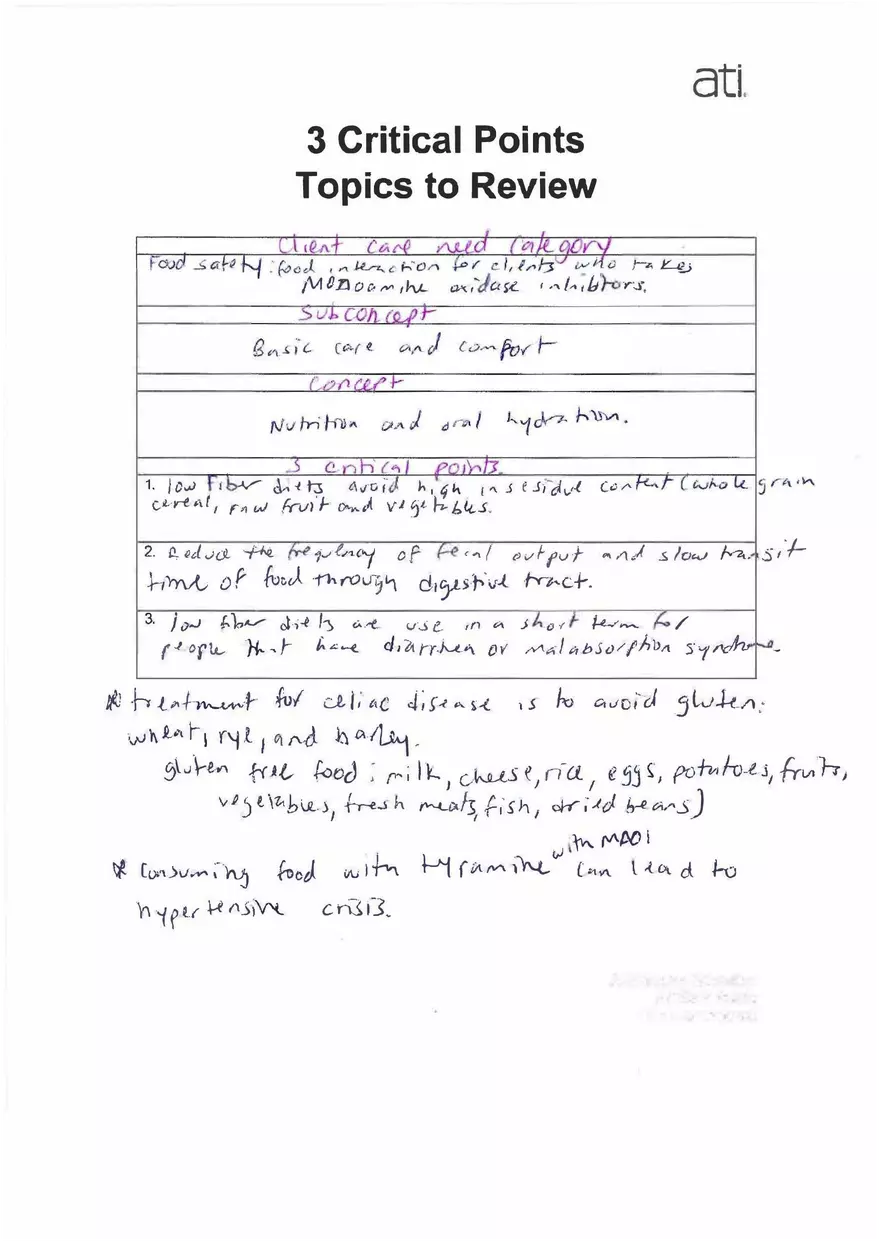 ati
3 Critical Points
Topics to Review
Client care need category
Food safety: food interaction for clients who takes
Monoamine oxidase inhibitors.
Subconcept
Basic care and comfort
Concept
Nutrition and oral hydration.
3 critical points.
1. low fiber diets avoid high in residue content (whole grain
cereal, raw fruit and vegetables.
2. Reduce the frequency of fecal output and slow transit
time of food through digestive tract.
3. low fiber diets are use in a short term for
people that have diarrhea or malabsorption syndrome.
* treatment for celiac disease is to avoid gluten:
wheat, rye, and barley.
gluten free food: milk, cheese, rice, eggs, potatoes, fruits,
vegetables, fresh meats, fish, dried beans)
with MAOI
* Consuming food with tyramine can lead to
hypertensive crisis.